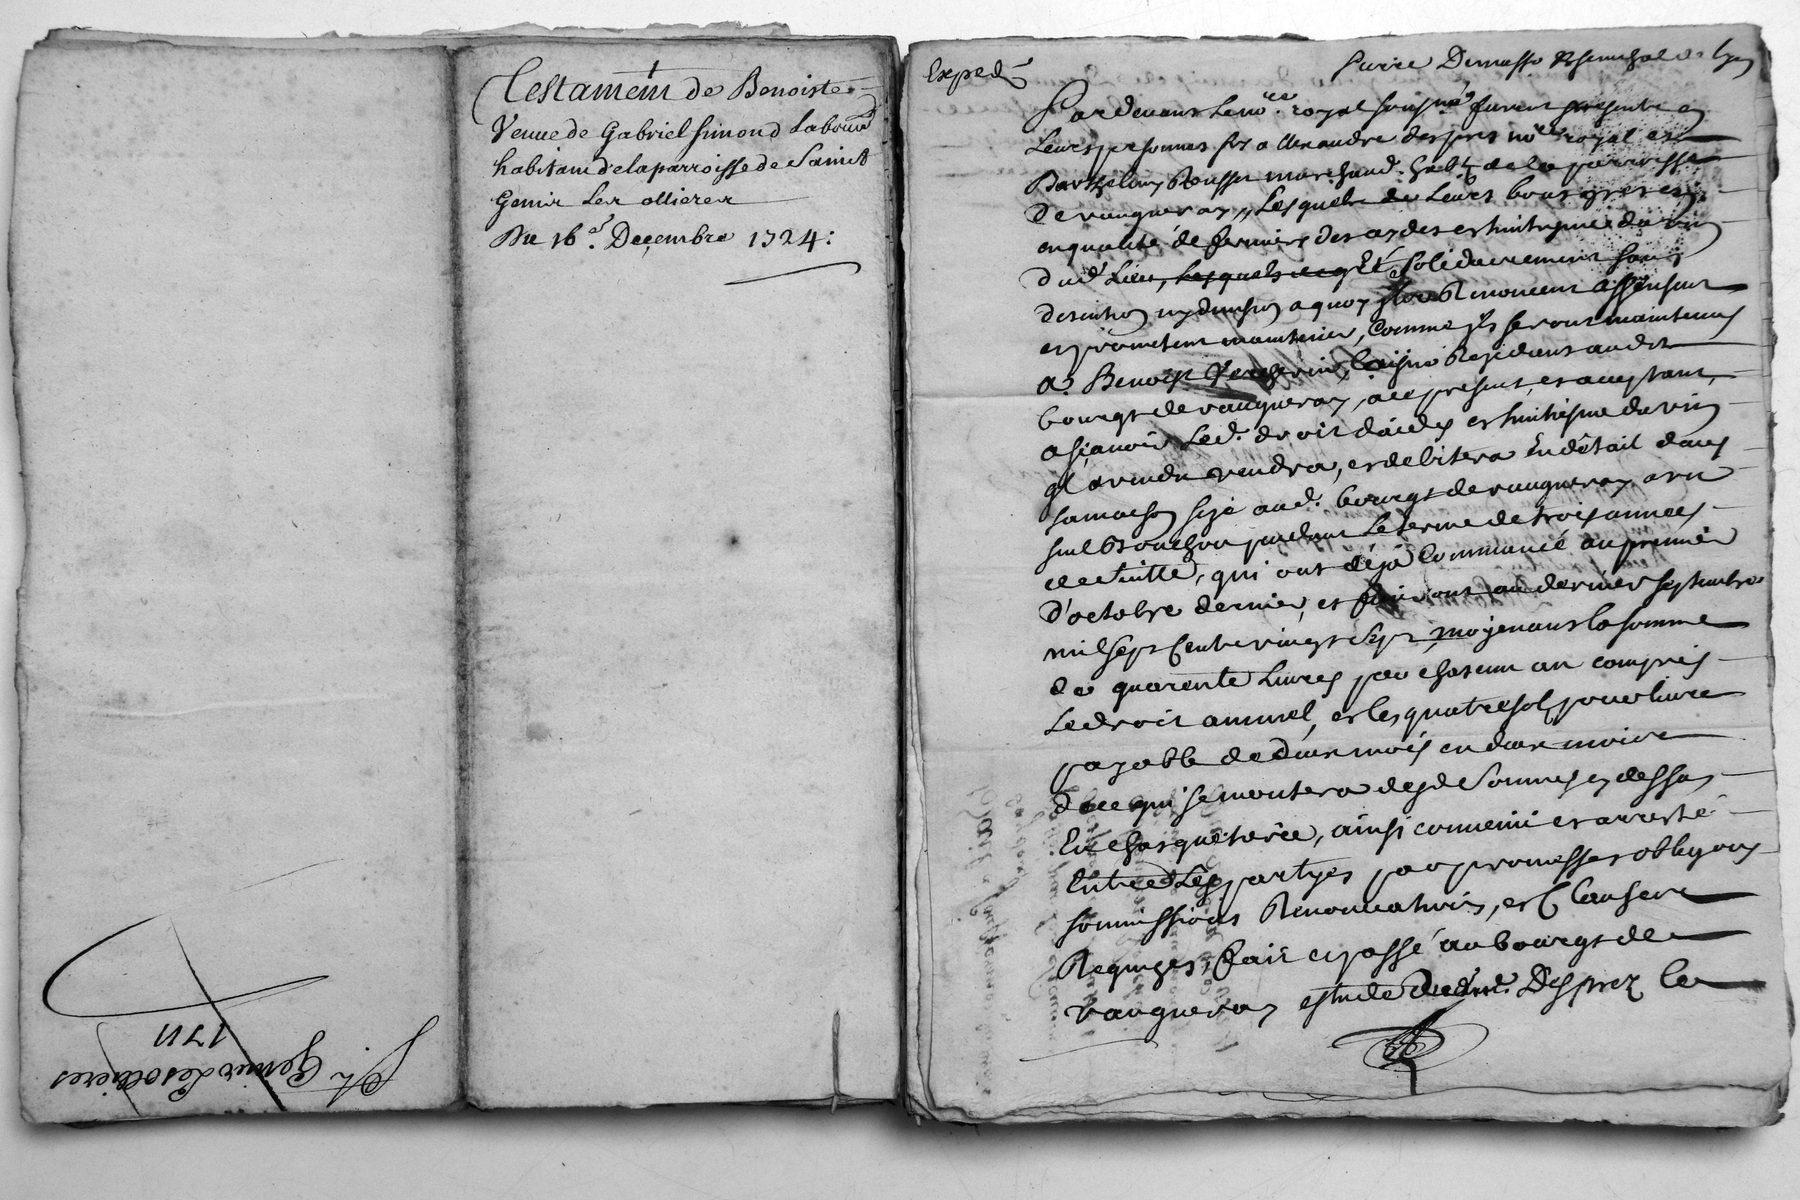 Testament de Benoiste
Veuue de Gabriel Simond Laboure
habitant de la parroisse de Sainct
Genis Les ollieres
Du 16e. Decembre 1724:
St. Genis Les ollieres
1711
Exped
Pardeuant Le no.re royal soussigné furent presents en
Leurs personnes sr alexandre despres no.re royal et
Barthelemy marchand. habt. de la parroisse
de vaugneray, Lesquels de Leurs bons gres et
en qualité de fermiers des aydes et huitiesme du vin
dud. Lieu, Lesquels solidairement sans
diuision ny discution a quoy Renoncent
et promettent maintenir, comme
a Benoist Residant audit
bourgt de vaugneray, ice present, et acceptant,
a sçauoir Led. droit d'aides et huitiesme du vin
vendra, et debitera En détail dans
sa maison size aud. bourgt de vaugneray a vn
seul Bouchon pendant Le terme de trois années
de suitte, qui ont déja Commancé au premier
d'octobre dernier, et finiront au dernier septembre
mil sept Cent vingt sept, moyenant la somme
de quarente Liures par chascun an compris
Le droit annuel, et les quatre sols pour liure
payable de deux mois en deux mois
de ce qui se montera
ainsi conuenu et arresté
Entre Les partyes par promesses obligaons
soumissions Renonciations, et Clauses
Requises, fait et passé au bourgt de
vaugneray estude dud. me. Desprez Le